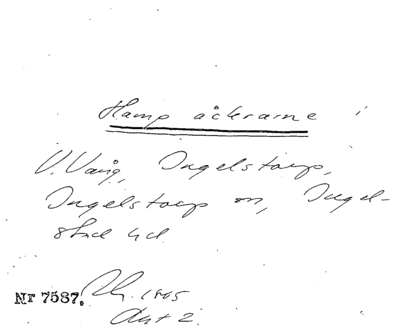 Hamp åkrarne i
V. Vång, Ingelstorp,
Ingelstorp sn, Ingel-
stad hd
Nr 7587. Rh. 1805
Akt 2.